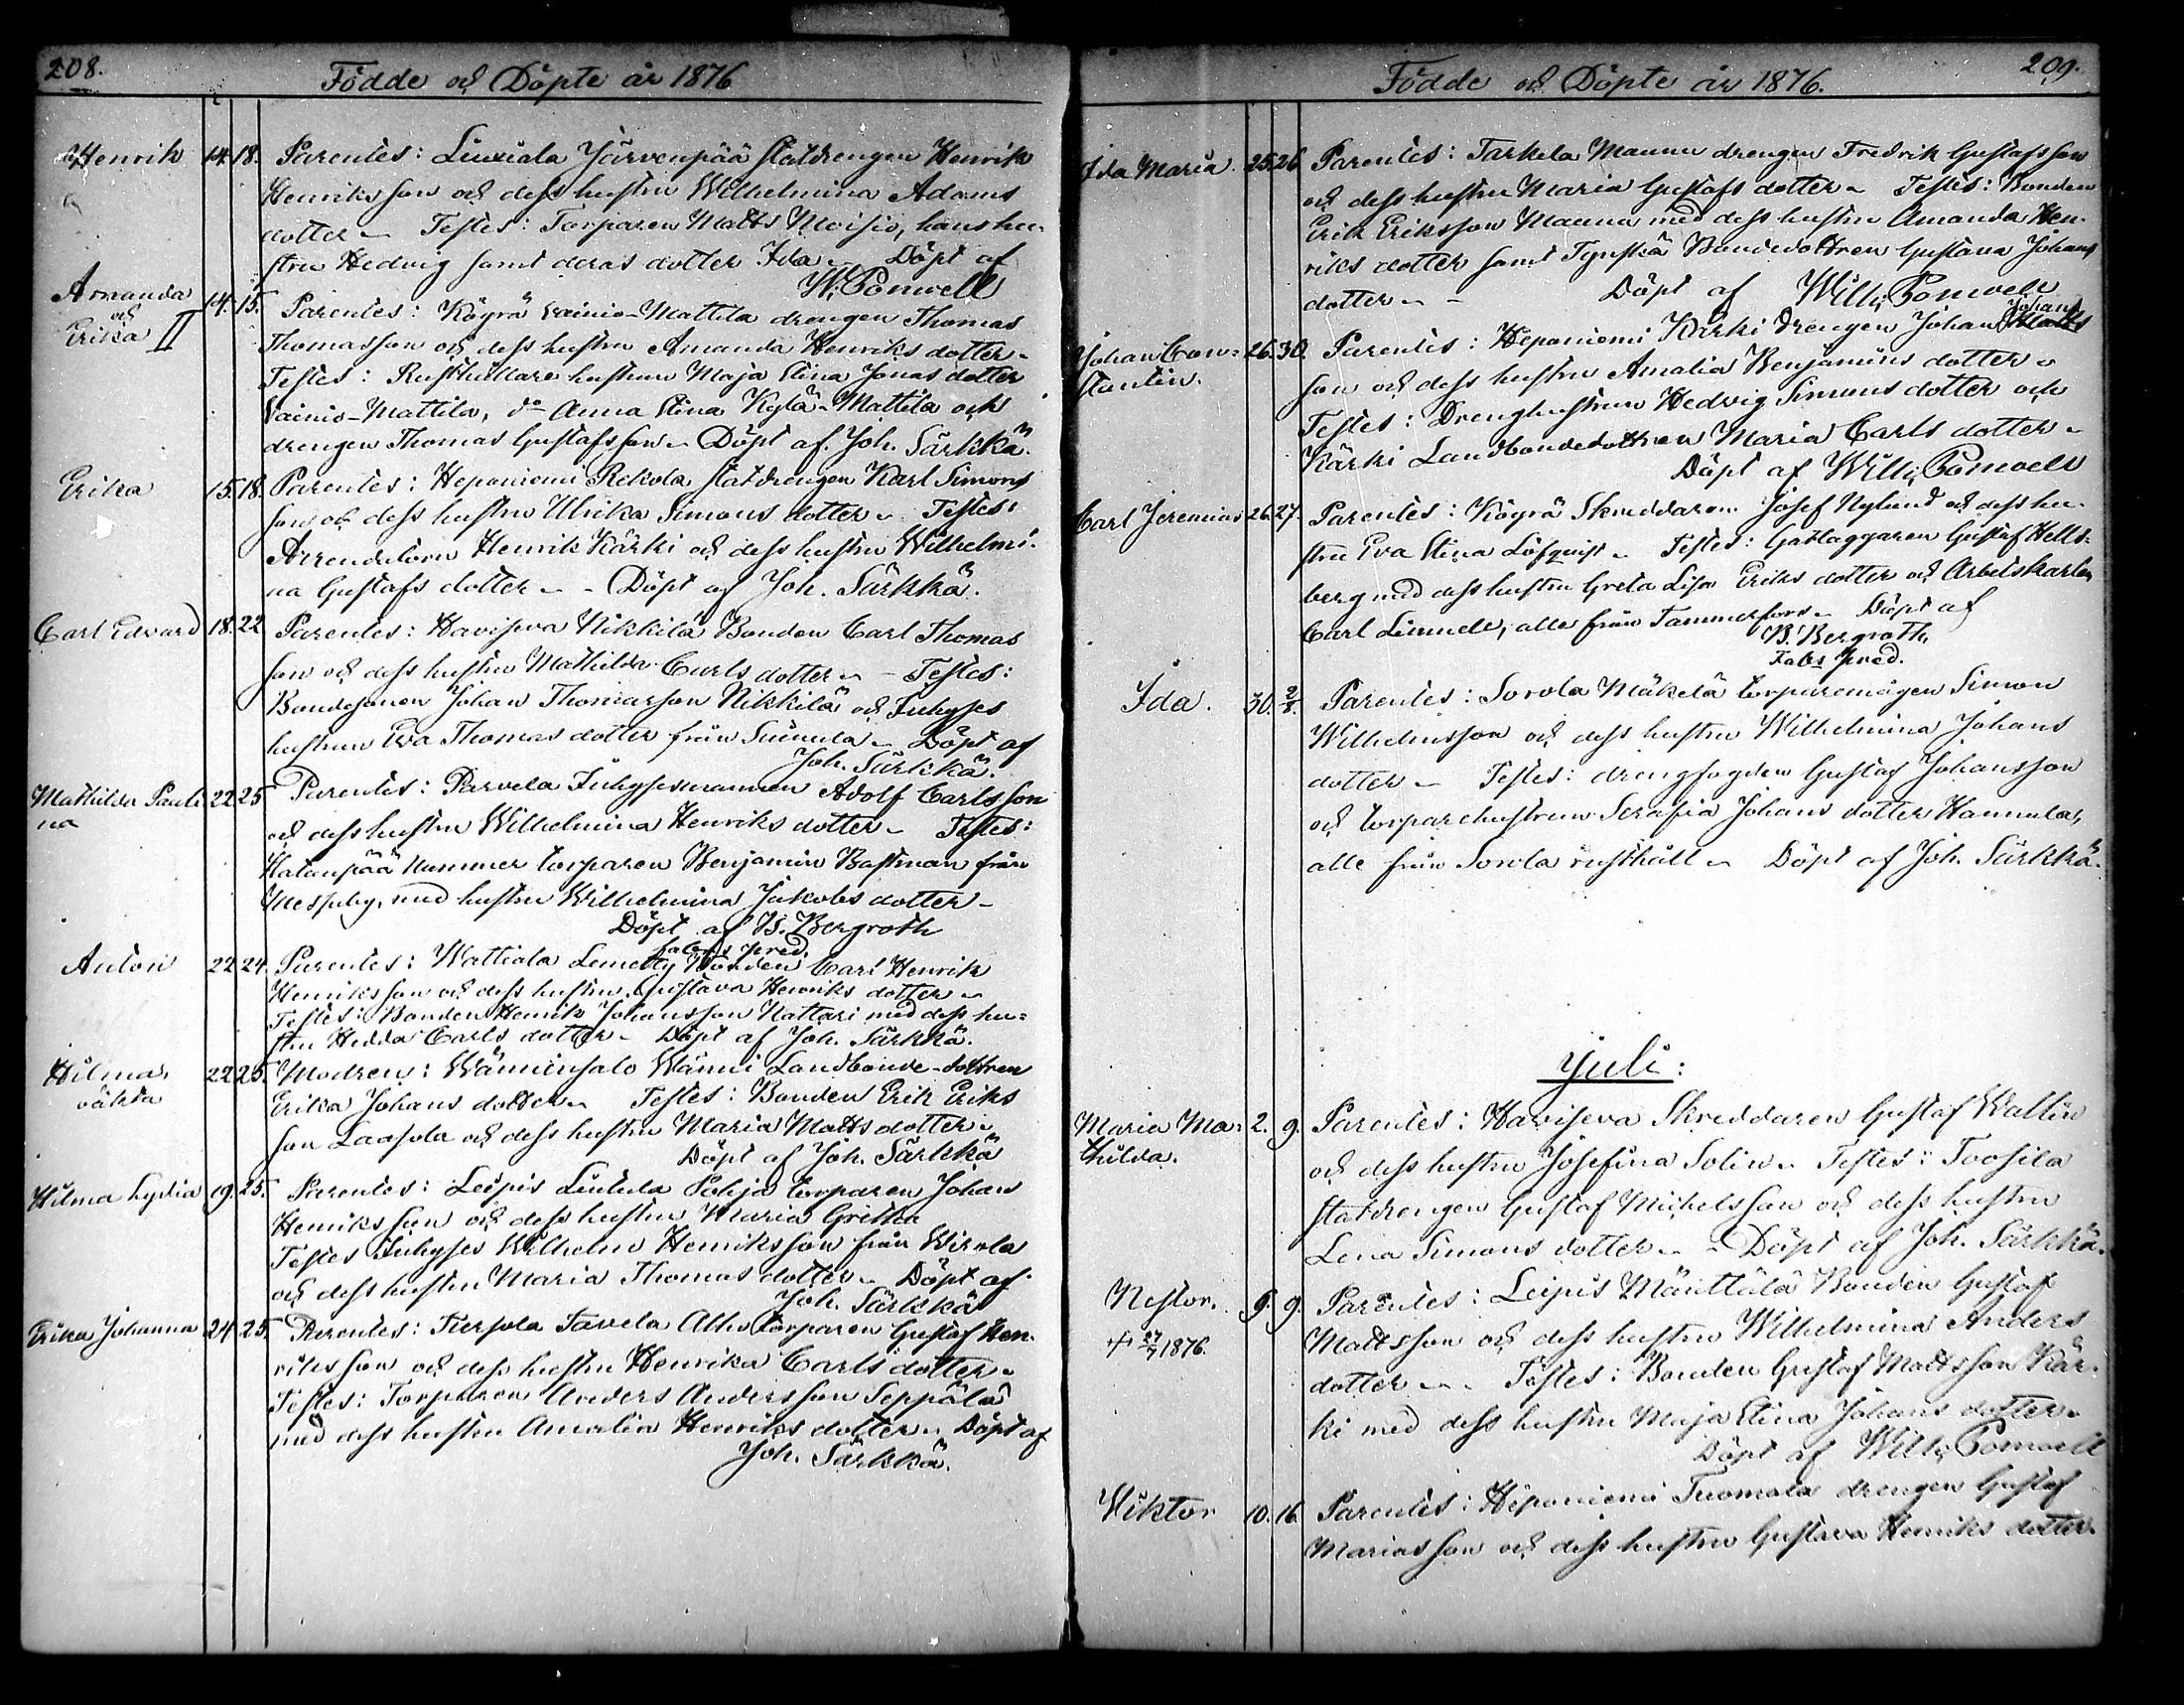 208.
Födde och Döpte år 1876
Henrik 14. 18. Parentes: Liuxiala Järvenpää statdrengen Henrik
Henriksson och dess hustru Wilhelmina Adams
dotter – Testes: Torparen Matts Moisio, hans hu-
stru Hedvig samt deras dotter Ida – Döpt af
W. Ponwell
Amanda 14. 15. Parentes: Kögrä Vainio-Mattila drengen Thomas
och
Erika II
Thomasson och dess hustru Amanda Henriks dotter –
Testes: Rusthållare hustrun Maja Stina Jonas dotter
Vainio-Mattila, do Anna Stina Kylä-Mattila och
drengen Thomas Gustafsson – Döpt af Joh. Särkkä.
Erika 15. 18. Parentes: Heponiemi Rekola statdrengen Karl Simons
son och dess hustru Ulrika Simons dotter – Testes:
Arrendatorn Henrik Kärki och dess hustru Wilhelmi-
na Gustafs dotter – – Döpt af Joh. Särkkä.
Carl Edvard 18. 22 Parentes: Haviseva Nikkilä Bonden Carl Thomas
son och dess hustru Mathilda Carls dotter – – Testes:
Bondesonen Johan Thomasson Nikkilä och Inhyses
hustrun Eva Thomas dotter från Suinula – Döpt af
Joh. Särkkä.
Mathilda Pauli- 22 25 Parentes: Parvela Inhysesmannen Adolf Carlsson
na
och dess hustru Wilhelmina Henriks dotter – Testes:
Hatanpää Nummer torparen Benjamin Bastman från
Messuby, med hustru Wilhelmina Jakobs dotter –
Döpt af B. Bergroth
fabrs pred.
Anton 22 24. Parentes: Wattiala Lemetty Bonden Carl Henrik
Henriksson och dess hustru Gustava Henriks dotter –
Testes: Bonden Henrik Johansson Nattari med dess hu-
stru Hedda Carls dotter – Döpt af Joh. Särkkä.
Hilma, 22 25. Modren: Wänninsalo Wänni Landbonde-dottren
oäkta
Erika Johans dotter – Testes: Bonden Erik Eriks
son Laasola och dess hustru Maria Matts dotter –
Döpt af Joh. Särkkä
Hilma Lydia 19. 25. Parentes: Leipis Liutula Pohja torparen Johan
Henriksson och dess hustru Maria
Testes Inhyses Wilhelm Henriksson från
och dess hustru Maria Thomas dotter – Döpt af
Joh. Särkkä
Erika Johanna 24. 25. Parentes: Tiersola Tavela torparen Gustaf Hen-
riksson och dess hustru Henrika Carls dotter –
Testes: Torparen Anders Andersson Seppälä
med dess hustru Amalia Henriks dotter – Döpt af
Joh. Särkkä.
Födde och Döpte år 1876.
209.
Ida Maria. 25. 26 Parentes: Tarkela Maunu drengen Fredrik Gustafsson
och dess hustru Maria Gustafs dotter – Testes: Bonden
Erik Eriksson Maunu med dess hustru Amanda Hen-
riks dotter samt Bondedottren Gustava Johans
dotter – – Döpt af Will; Ponwell
Johans
Johan Con- 26. 30. Parentes: Heponiemi Kärki drengen Johan Matts
stantin.
son och dess hustru Amalia Benjamins dotter –
Testes: Drenghustrun Hedvig Simons dotter och
Kärki Landbondedottren Maria Carls dotter –
Döpt af Will; Ponwell
Carl Jeremias 26. 27. Parentes: Kögrä Skreddaren Josef Nylund och dess hu-
stru Eva Stina Löfqvist – Testes: Gatläggaren Gustaf Hells-
berg med dess hustru Greta Lisa Eriks dotter och Arbetskarlen
Carl Linnell, alle från Tammerfors – Döpt af
B. Bergroth,
Fabrs pred.
Ida. 30. 2/8. Parentes: Sorola Mäkelä torparemågen Simon
Wilhelmsson och dess hustru Wilhelmina Johans
dotter – Testes: drengfogden Gustaf Johansson
och torparehustrun Serafia Johans dotter Hannula,
alle från Sorola rusthåll – Döpt af Joh. Särkkä.
Juli:
Maria Ma- 2. 9. Parentes: Haviseva Skreddaren Gustaf Wallin
thilda.
och dess hustru Josefina Solin – Testes: Toosila
statdrengen Gustaf Michelsson och dess hustru
Lena Simons dotter – – Döpt af Joh. Särkkä.
Nestor. 6. 9. Parentes: Leipis Mänttälä Bonden Gustaf
† 27/7 1876.
Mattsson och dess hustru Wilhelmina Anders
dotter – – Testes: Bonden Gustaf Mattsson Kär-
ki med dess hustru Maja Stina Johans dotter –
Döpt af Will; Ponwell
Wiktor 10. 16. Parentes: Heponiemi Tuomala drengen Gustaf
Mariasson och dess hustru Gustava Henriks dotter.